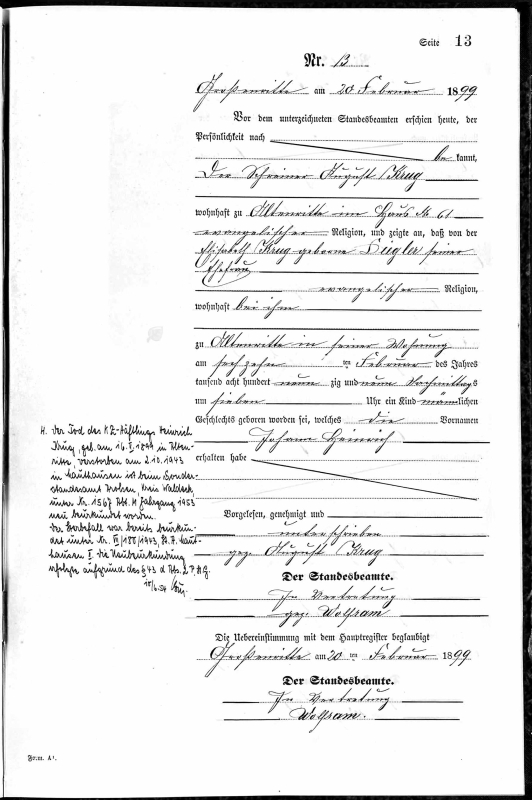 Seite 13
Nr. 13
Großenritte am 20 Februar 1899
Vor dem unterzeichneten Standesbeamten erschien heute, der
Persönlichkeit nach
be kannt,
Der Schreiner August Krug
wohnhaft zu Altenritte im Haus № 61
evangelischer Religion, und zeigte an, daß von der
Elisabeth Krug geborne Siegler seiner
Ehefrau
evangelischer Religion,
wohnhaft bei ihm
zu Altenritte in seiner Wohnung
am sechzehn ten Februar des Jahres
tausend acht hundert neun zig und neun Nachmittags
um sieben Uhr ein Kind männlichen
Geschlechts geboren worden sei, welches die Vornamen
Johann Heinrich
erhalten habe
Vorgelesen, genehmigt und
unterschrieben
gez. August Krug
Der Standesbeamte.
In Vertretung
gez. Wolfram
Die Uebereinstimmung mit dem Hauptregister beglaubigt
Großenritte am 20 ten Februar 1899
Der Standesbeamte.
In Vertretung
Wolfram.
H. Der Tod des KZ-Häftlings Heinrich
Krug, geb. am 16. 1899 in Alten-
ritte verstorben am 2.10.1943
in Mauthausen ist beim Sonder-
standesamt Arolsen, Kreis Waldeck,
unter Nr. 1567 Abt. M Jahrgang 1953
neu beurkundet worden.
Der Sterbefall war bereits beurkun-
det unter Nr. 188/1943, St.A. Maut-
hausen I. Die Neubeurkundung
erfolgte aufgrund des § 43 d Abs. 2 P.St.G.
Form. A¹.